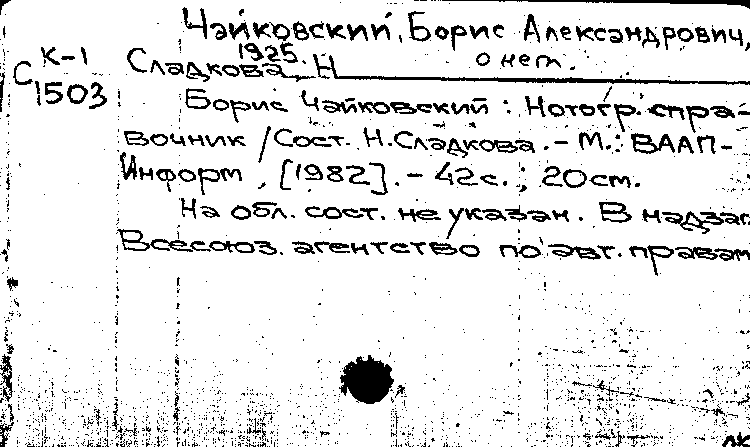 Чайковский, Борис Александрович,
1925. о нем.
К-1 Сладкова, Н
С 1503
Борис Чайковский : Нотогр. спра-
вочник / Сост. Н. Сладкова. - М. : ВААП-
Информ, [1982]. - 42 с. ; 20 см.
На обл. сост. не указан. В надзаг
Всесоюз. агентство по авт. правам